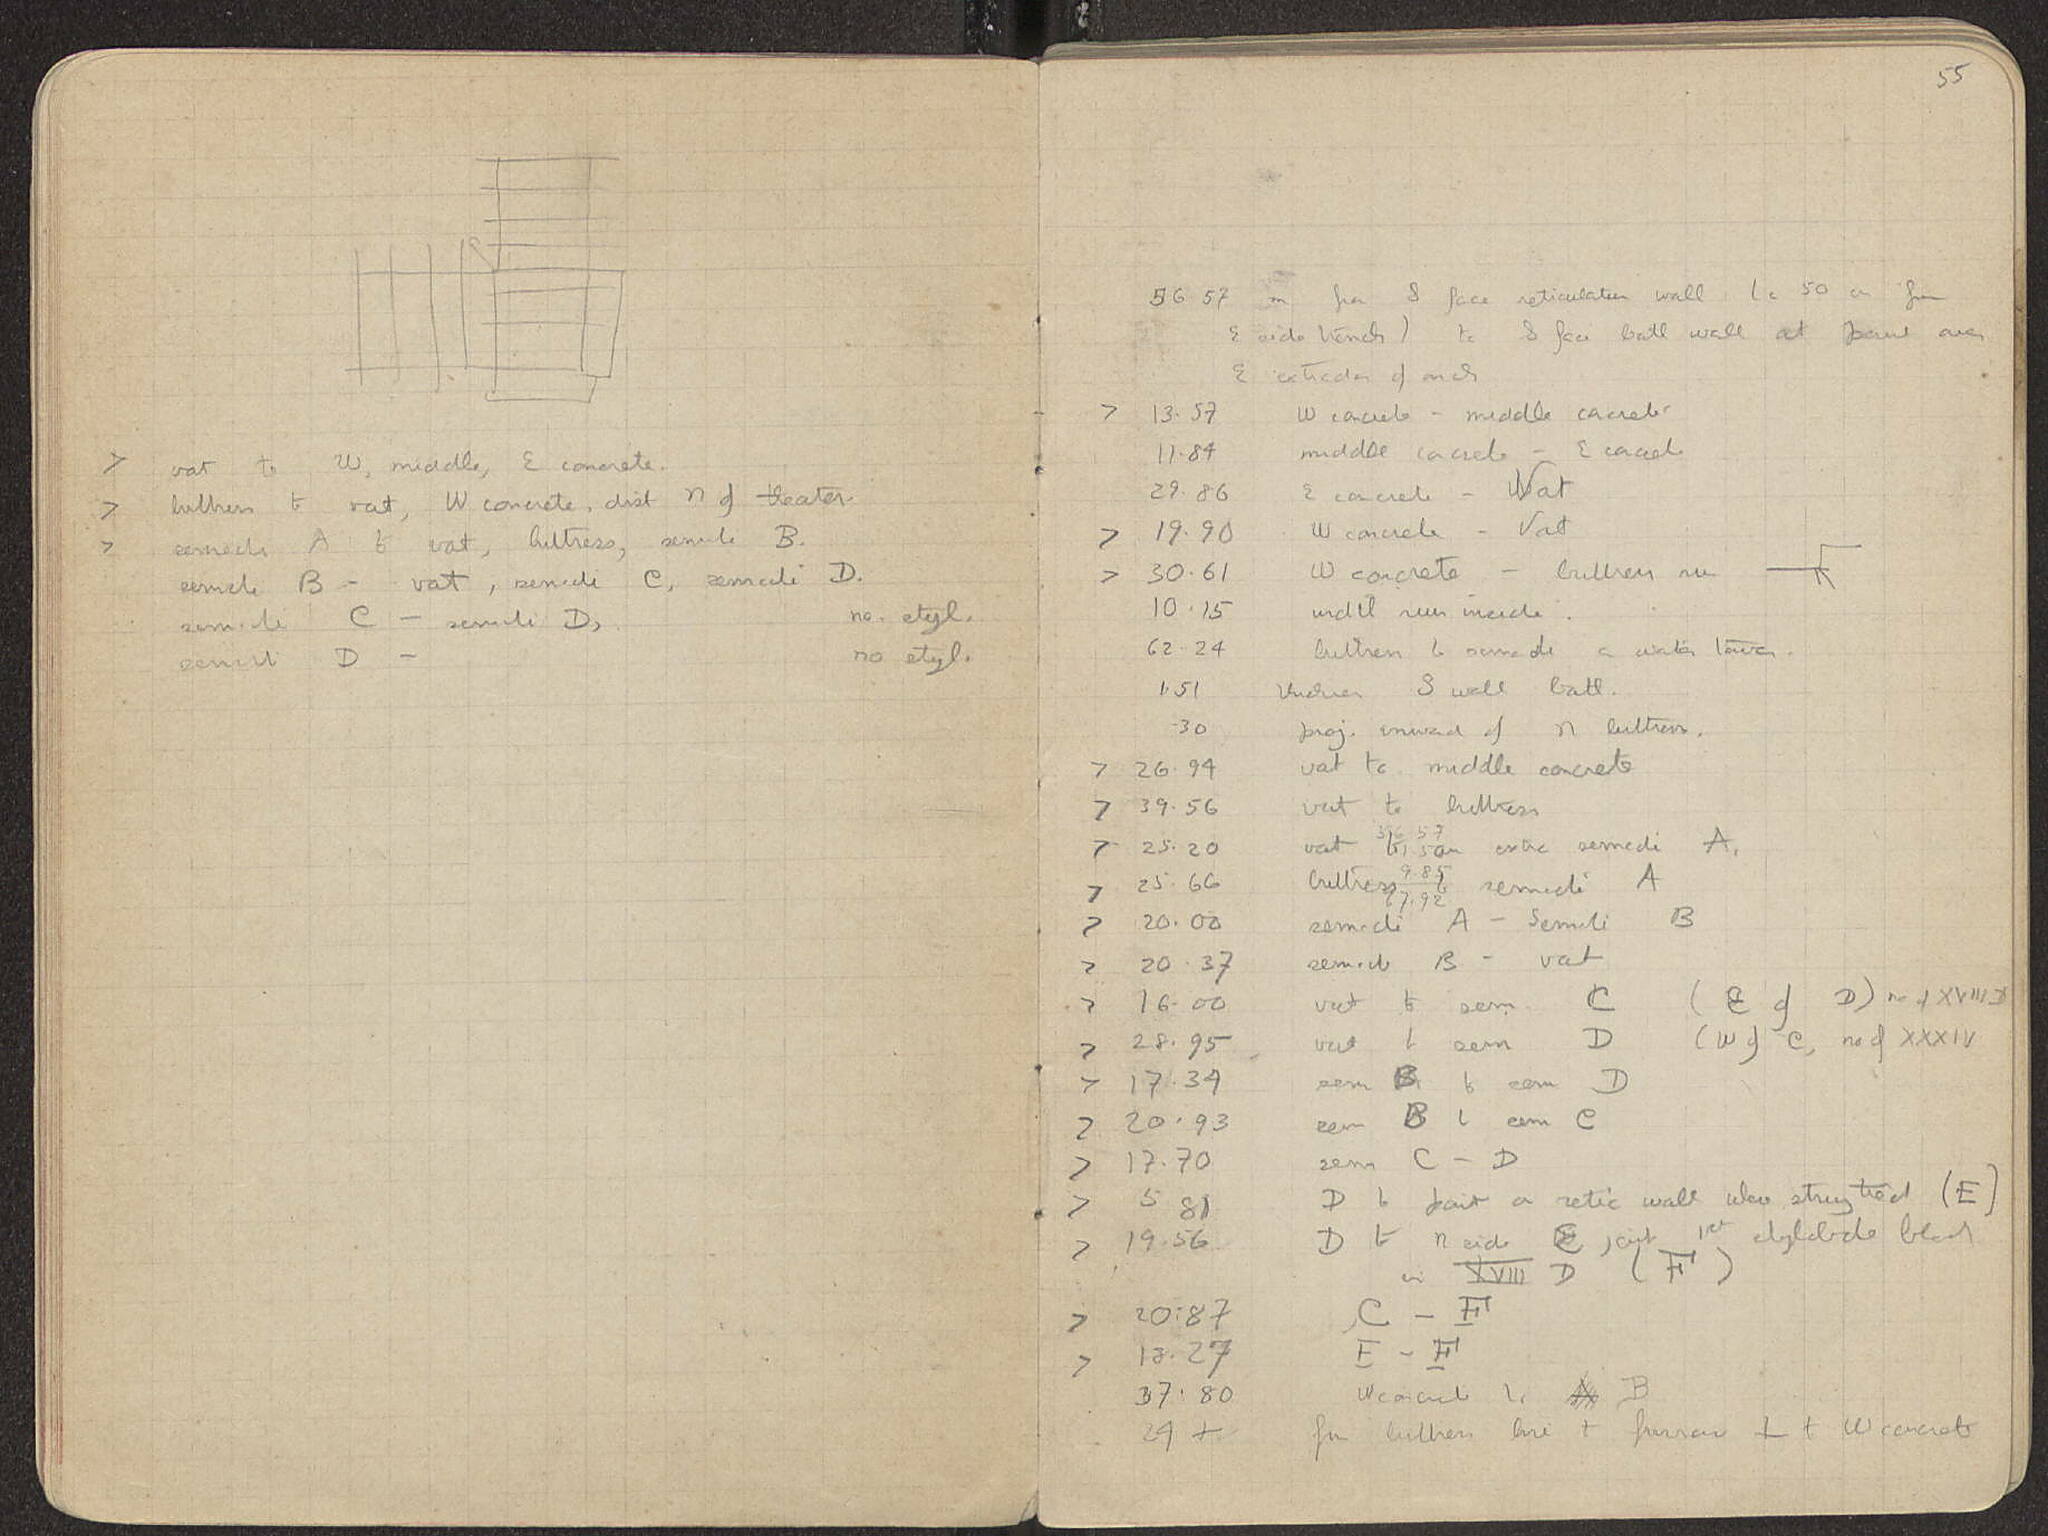 > vat to W, middle, E concrete.
> buttress to vat, W concrete, dist N of theater.
> semicdi A to vat, buttress, semicdi B.
semicdi B - vat, semicdi C, semicdi D.
semicdi C - semicdi D, no. styl.
semicdi D - no styl.
55
56.57 m from S face reticulatum wall (c 50 cm from
E side trench) to S face bath wall at point over
E extrados of arch
> 13.57 W concrete - middle concrete
11.84 middle concrete - E concrete
29.86 E concrete - Vat
> 19.90 W concrete - Vat
> 30.61 W concrete - buttress
10.15 width inside.
62.24 buttress to on water tower.
1.51 thickness S wall bath.
.30 proj. inward of N buttress.
> 26.94 vat to middle concrete
> 39.56 vat to buttress
> 25.20 vat to semicdi A.
56 57
1 50
> 25.66 buttress to semicdi A
9.85
67.92
> 20.00 semicdi A - Semicdi B
> 20.37 semicdi B - vat
> 16.00 vat to sem. C (E of D) no of XVIII D
> 28.95 vat to sem D (W of C, no of XXXIV
> 17.34 sem B to sem D
> 20.93 sem B to sem C
> 17.70 sem C - D
> 5 81 D to point on retic wall (E)
> 19.56 D to N side joint 1st stylobate block
in XVIII D (F)
> 20.87 C - F
> 18.27 E - F
37.80 W concrete to B
24 + from buttress line + ⊥ + W concrete